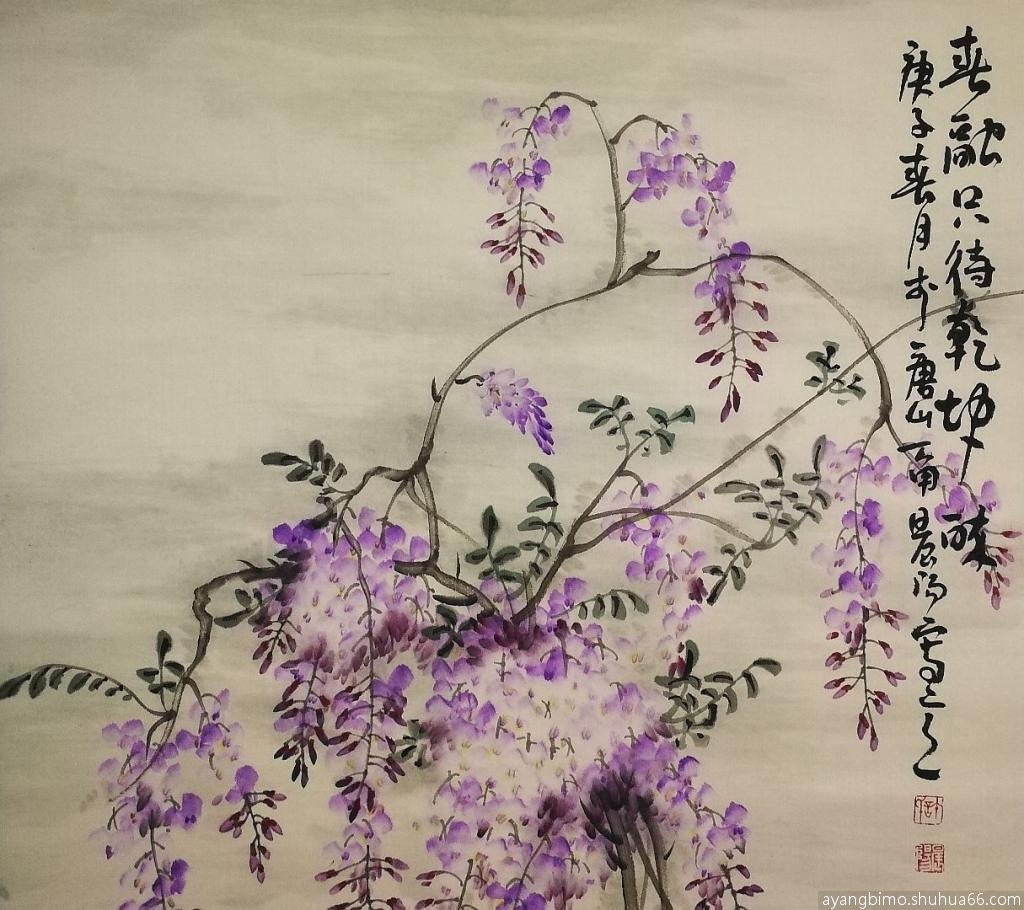 春融只待乾坤醉
庚子春月於唐山晨阳写之
ayangbimo.shuhua66.com